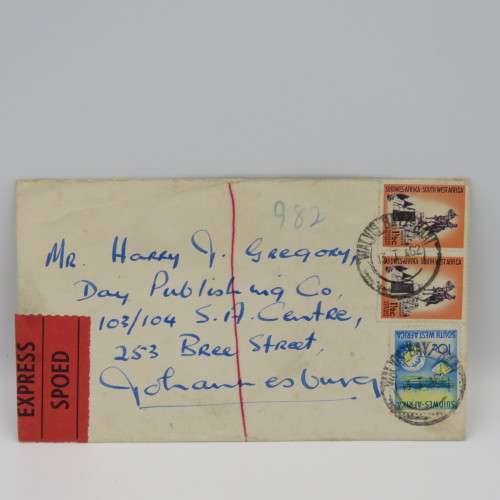 982
Mr. Harry J. Gregory,
Day Publishing Co,
103/104 S.A. Centre,
253 Bree Street,
Johannesburg
EXPRESS
SPOED
SUIDWES-AFRIKA · SOUTH WEST AFRICA
1½c
SUIDWES-AFRIKA · SOUTH WEST AFRICA
1½c
10c SOUTH WEST AFRICA
SUIDWES-AFRIKA
WALVIS BAY
WALVIS BAY